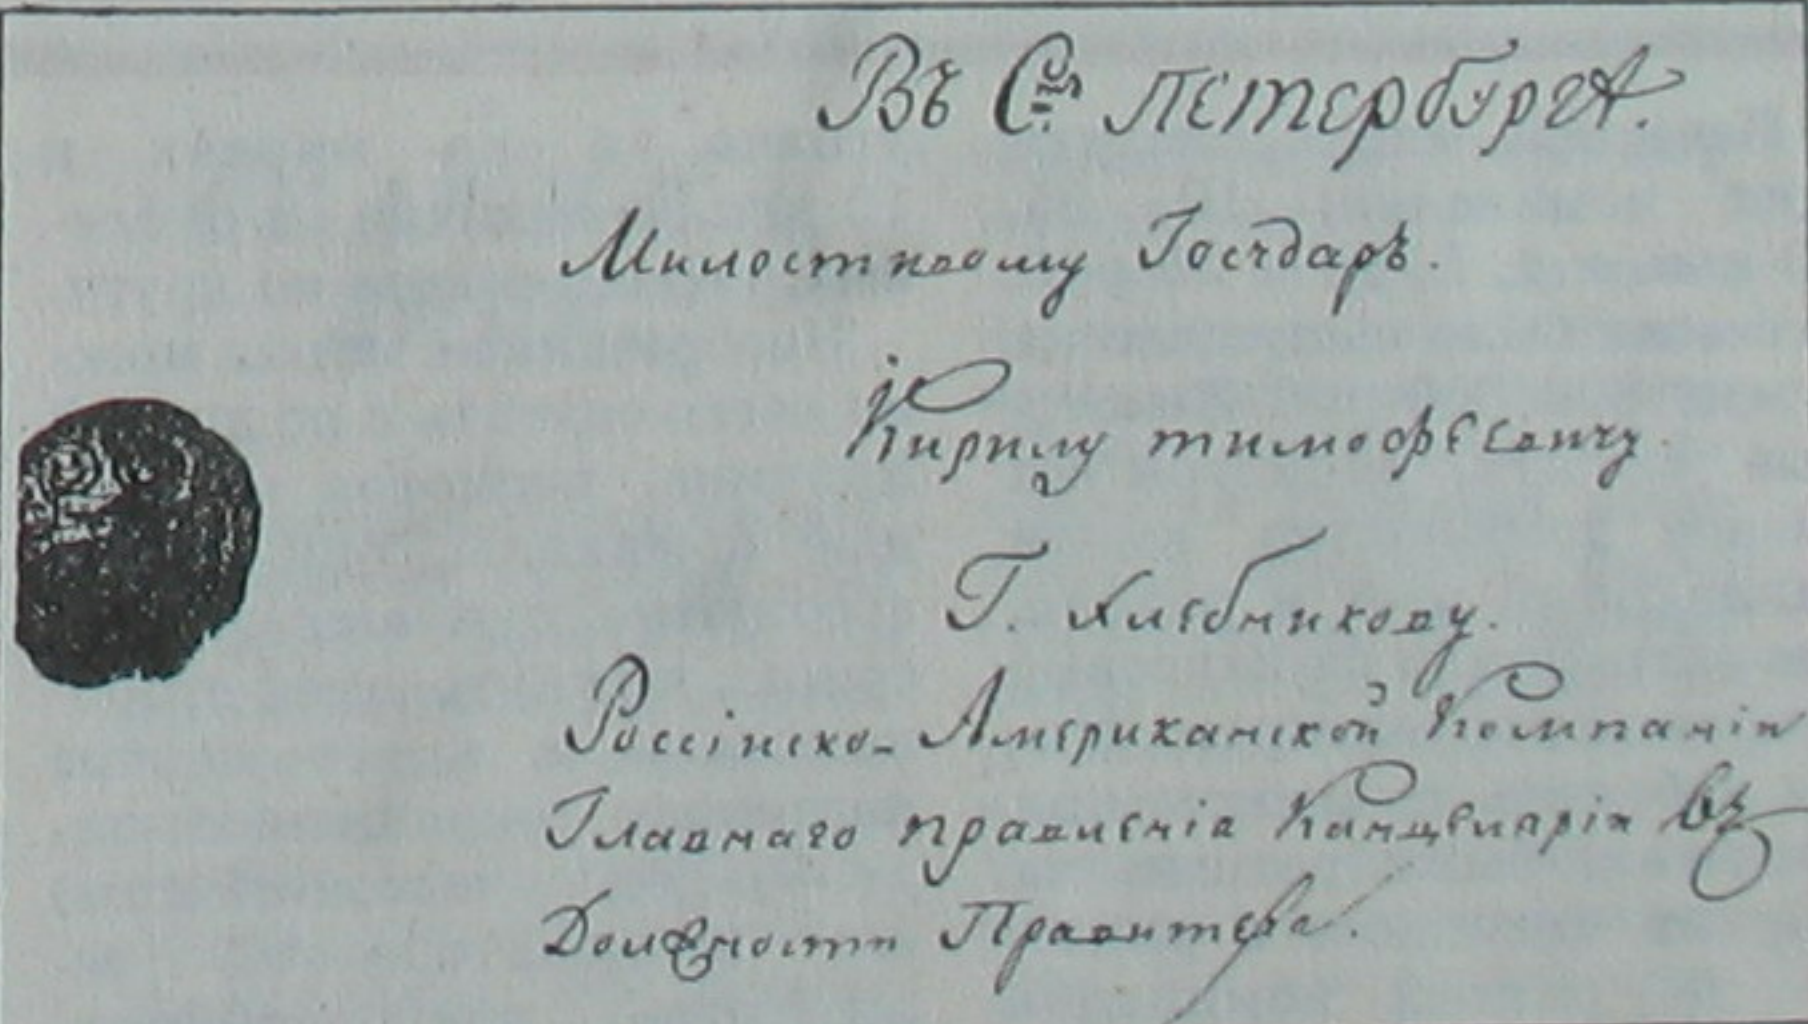 Въ Ст. Петербургѣ.
Милостивому Государъ.
Кирилу тимофеевичу.
Г. хлебникову.
Россіиско-Американской Компаніи
Главнаго правленіа Канцеляріи въ
Должности Правителя.